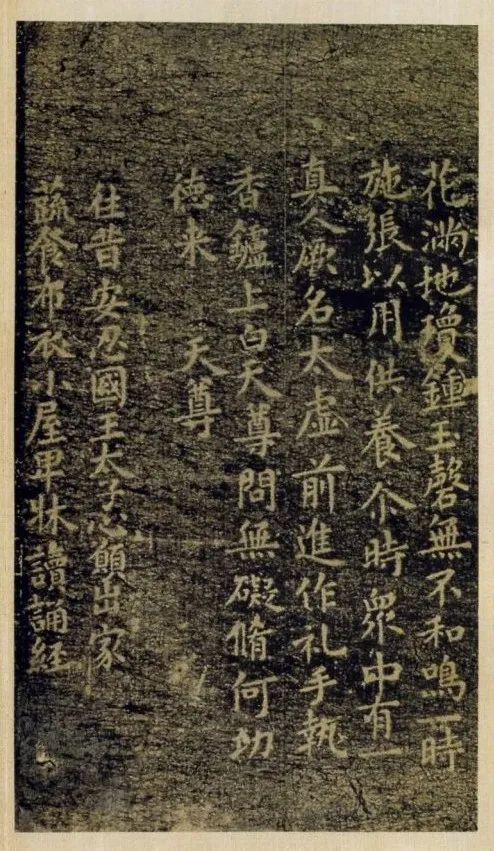 花满地瓊鍾玉磬無不和鳴一時
施張以用供養尒時眾中有一
真人厥名太虛前進作礼手執
香鑪上白天尊問無礙脩何功
德来 天尊
往昔安忍國王太子心願出家
蔬食布衣小屋卑牀讀誦経